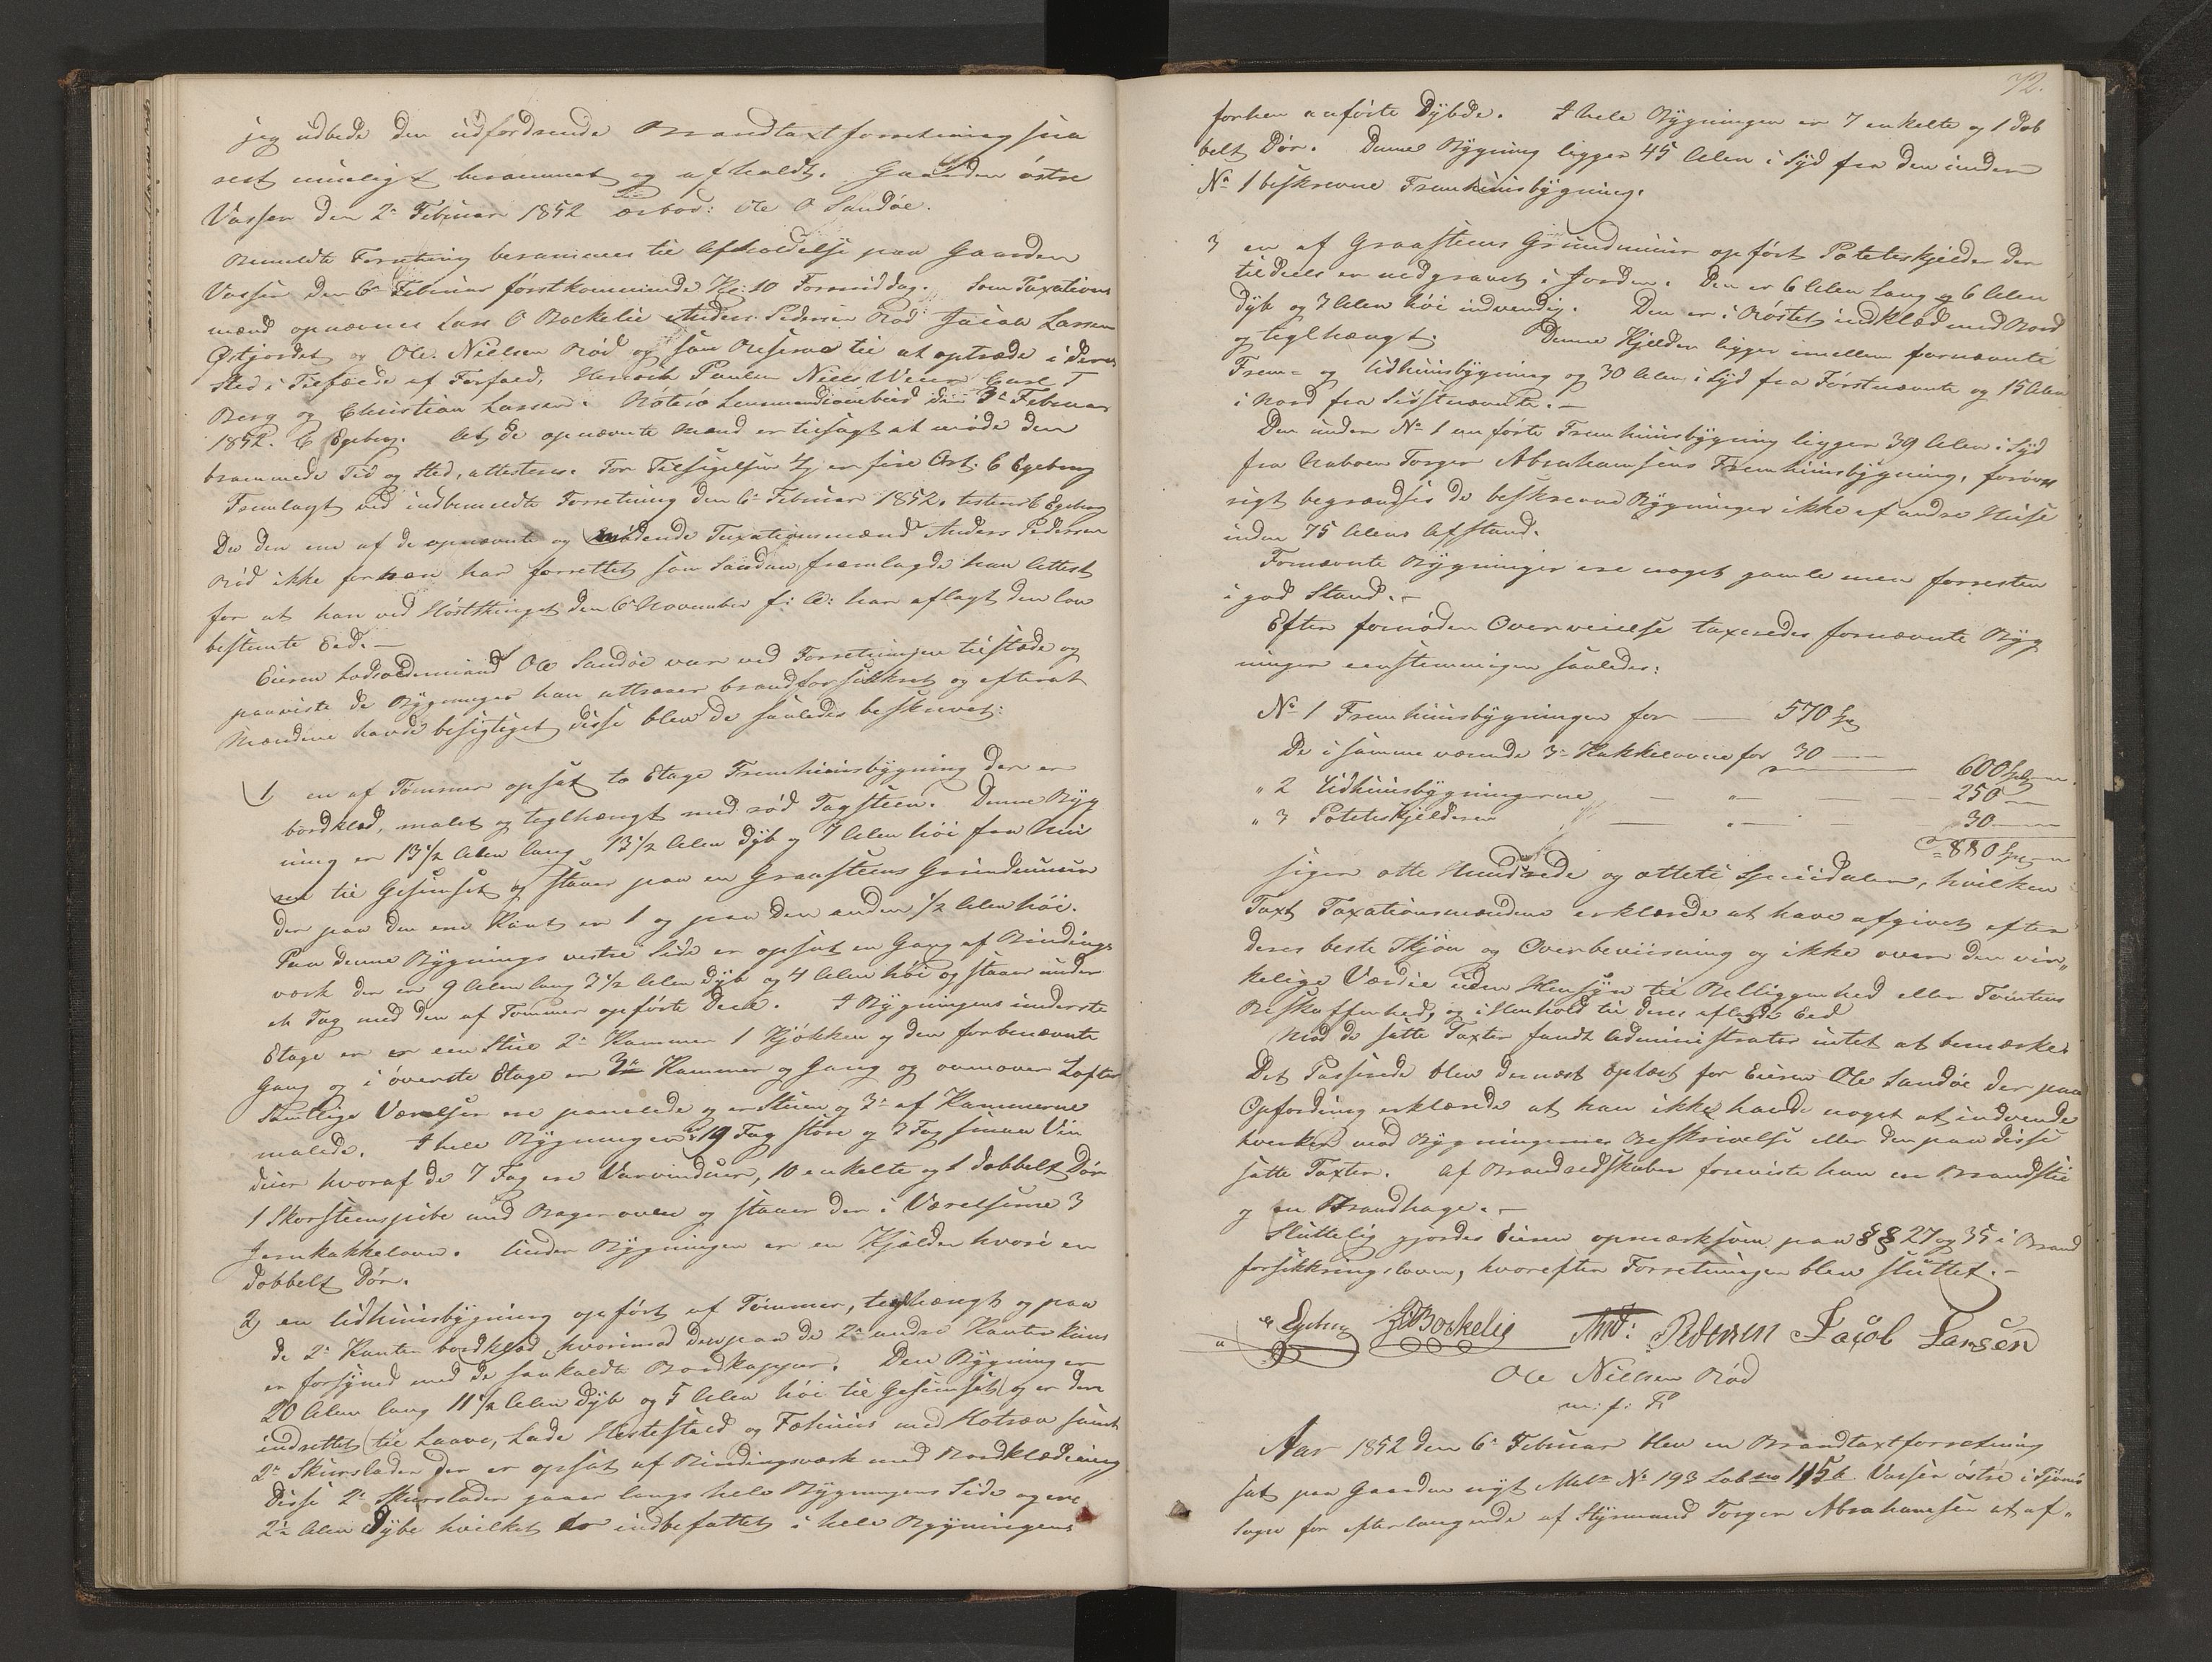 jeg udbede den udfordrende Brandtaxtforretning snа
rest mueligt berammet og afholdt. Gaarden östre
Vassen den 2n Februar 1852 ærbød: Ole O Sandöe.
Bemeldte Forretning berammes til Afholdelse paa Gaarden
Vassen den 6n Februar förstkommende Kl: 10 Formiddag. Som Taxations
mænd opnævnes Lars O Bockelie Anders Pedersen Röd Jacob Larsen
Østjordet og Ole Nielsen Röd og som Reserve til at optræde i deres
Sted i Tilfælde af Forfald, Henrich Paulsen Niels Weier Carl T
Berg og Christian Larsen. Nöterö Lensmandsombud den 3n Februar
1852. C Egeberg. At de opnævnte Mænd er tilsagt at möde den
brammede Tid og Sted, attesteres. For Tilsigelsen 4/ er fire Ort: C Egeberg
Fremlagt ved indbemeldte Forretning den 6n Februar 1852. testerer C Egeberg
Da den ene af de opnævnte og mödende Taxationsmænd Anders Pedersen
Röd ikke forhen har forrettet som Saadan, fremlagde han Attest
for at han ved Höstthinget den 6 November f: A: har aflagt den lov
bestemte Eed. —
Eieren Lodsoldermand Ole Sandöe var ved Forretningen tilstæde og
paaviste de Bygninger han attraaer brandforsikkret og efterat
Mændene havde besigtiget disse blev de saaledes beskrevet:
1 en af Tömmer opsat to Etage Fremhuusbygning der er
bordklæd, malet og teglhængt med röd Tagsteen. Denne Byg
ning er 13 1/2 Alen lang 13 1/2 Alen dyb og 7 Alen höi fra Mu
ren til Gesimset og staaer paa en Graasteens Grundmuur
der paa den ene Kant er 1 og paa den anden 1/2 Alen höi.
Paa denne Bygnings vestre Side er opsat en Gang af Bindings
værk der er 9 Alen lang 3 1/2 Alen dyb og 4 Alen höi og staaer under
et Tag med den af Tömmer opförte Deel. I Bygningens underste
Etage er een Stue 2n Kammer 1 Kjökken og den forbenævnte
Gang og i överste Etage er 3n Kammer og Gang og ovenover Lofter
Samtlige Værelser ere panelede og er Stuen og 3n af Kammerne
malede. I hele Bygningen er 19 Fag store og 3 Fag smaa Vin
duer hvoraf de 7 Fag ere Varvinduer, 10 enkelte og 1 dobbelt Dör
1 Skorsteenspibe med Bagerovn og staaer der i Værelserne 3
Jernkakkelovne. Under Bygningen er en Kjelder hvori en
dobbelt Dör.
2) en Udhuusbygning opfört af Tömmer, teglhængt og paa
de 2n Kanter bordklæd, hvorimod den paa de 2n andre Kanter kuns
er forsynet med de saakaldte Bordkapper. Den Bygning er
20 Alen lang 11 1/2 Alen dyb og 5 Alen höi til Gesimset og er den
indrettet til Laave, Lade Hestestald og Fæhuus med Kotræv samt
2n Skurslader der er opsat af Bindingsværk med Bordklædning
disse 2n Skurslader gaaer langs hele Bygningens Side og ere
2 1/2 Alen dybe hvilket er indbefattet i hele Bygningens
72.
forhen anförte Dybde. I hele Bygningen er 7 enkelte og 1 dob
belt Dör. Denne Bygning ligger 45 Alen i Syd fra den under
No 1 beskrevne Fremhuusbygning.
3 en af Graasteens Grundmuur opfört Poteteskjelder der
tildeels er nedgravet i Jorden. Den er 6 Alen lang og 6 Alen
dyb og 3 Alen höi indvendig. Den er i Röstet indklæd med Bord
og teglhængt. Denne Kjelder ligger imellem fornævnte
Frem- og Udhuusbygning og 30 Alen i Syd fra Förstnævnte og 15 Alen
i Nord fra Sidstnævnte. —
Den under No 1 anförte Fremhuusbygning ligger 39 Alen i Syd
fra Naboen Torger Abrahamsens Fremhuusbygning, forövr
rigt begrændses de beskrevne Bygninger ikke af andre Huse
inden 75 Alens Afstand.
Fornævnte Bygninger ere noget gamle men forresten
i god Stand. —
Efter fornöden Overveielse taxeredes fornævnte Byg
ninger eenstemmigen saaledes:
No 1 Fremhuusbygningen for — 570 Spd
De i samme værende 3n Kakkelovne for 30 —
600 Spd —
" 2 Udhuusbygningerne — " — 250 —
" 3 Poteteskjelderen — " — 30 —
= 880 Spd —
siger otte Hundrede og otteti Speciedaler, hvilken
Taxt Taxationsmændene erklærede at have afgivet efter
deres beste Skjön og Overbeviisning og ikke over den vir„
kelige Værdie uden Hensyn til Belliggenhed eller Tomtens
Beskaffenhed, og i Henhold til deres aflagde Eed
Mod de satte Taxter fandt Administrator intet at bemærke.
Det Passerede blev dernæst oplæst for Eieren Ole Sandöe der paa
Opfordring erklærede at han ikke havde noget at indvende
hverken mod Bygningernes Beskrivelse eller den paa disse
satte Taxter. Af Brandredskaber foreviste han en Brandstie
og en Brandhage. —
Sluttelig gjordes Eieren opmærksom paa §§ 27 og 35 i Brand
forsikkringsloven, hvorefter Forretningen blev sluttet. —
C Egeberg L O Bockelie And: Pedersen Jacob Larsen
Ole Nielsen Röd
m: f: P
Aar 1852 den 6n Februar blev en Brandtaxtforretning
sat paa Gaarden nyt Matr No 193 Lobno 115b Vassen östre i Tjömö
Sogn for efterlangende af Styrmand Torger Abrahamsen at af„